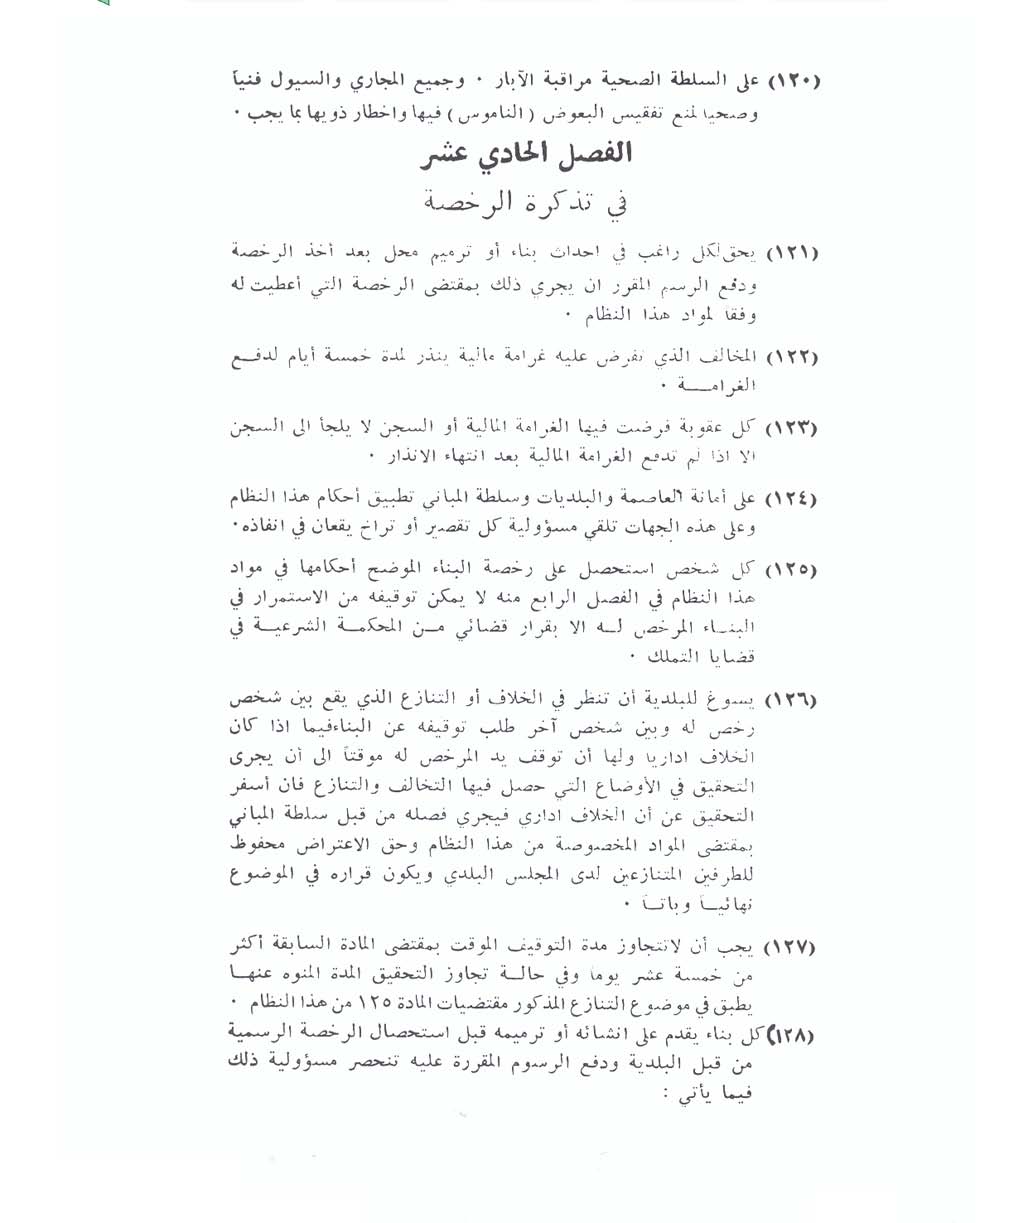 (١٢٠) على السلطة الصحية مراقبة الآبار ٠ وجميع المجاري والسيول فنياً
وصحيا لمنع تفقيس البعوض (الناموس) فيها واخطار ذويها بما يجب ٠
الفصل الحادي عشر
في تذكرة الرخصة
(١٢١) يحق لكل راغب في احداث بناء أو ترميم محل بعد أخذ الرخصة
ودفع الرسم المقرر ان يجري ذلك بمقتضى الرخصة التي أعطيت له
وفقا لمواد هذا النظام ٠
(١٢٢) المخالف الذي تفرض عليه غرامة مالية ينذر لمدة خمسة أيام لدفـع
الغرامـــة ٠
(١٢٣) كل عقوبة فرضت فيها الغرامة المالية أو السجن لا يلجأ الى السجن
الا اذا لم تدفع الغرامة المالية بعد انتهاء الانذار ٠
(١٢٤) على أمانة العاصمة والبلديات وسلطة المباني تطبيق أحكام هذا النظام
وعلى هذه الجهات تلقي مسؤولية كل تقصير أو تراخ يقعان في انفاذه٠
(١٢٥) كل شخص استحصل على رخصة البناء الموضح أحكامها في مواد
هذا النظام في الفصل الرابع منه لا يمكن توقيفه من الاستمرار في
البنـاء المرخص لـه الا بقرار قضائي مـن المحكمـة الشرعيـة في
قضايا التملك ٠
(١٢٦) يسوغ للبلدية أن تنظر في الخلاف أو التنازع الذي يقع بين شخص
رخص له وبين شخص آخر طلب توقيفه عن البناءفيما اذا كان
الخلاف اداريا ولها أن توقف يد المرخص له موقتاً الى أن يجرى
التحقيق في الأوضاع التي حصل فيها التخالف والتنازع فان أسفر
التحقيق عن أن الخلاف اداري فيجري فصله من قبل سلطة المباني
بمقتضى المواد المخصوصة من هذا النظام وحق الاعتراض محفوظ
للطرفين المتنازعين لدى المجلس البلدي ويكون قراره في الموضوع
نهائيـاً وباتـاً ٠
(١٢٧) يجب أن لاتتجاوز مدة التوقيف الموقت بمقتضى المادة السابقة أكثر
من خمسة عشر يوماً وفي حالـة تجاوز التحقيق المدة المنوه عنهـا
يطبق في موضوع التنازع المذكور مقتضيات المادة ١٢٥ من هذا النظام ٠
(١٢٨) كل بناء يقدم على انشائه أو ترميمه قبل استحصال الرخصة الرسمية
من قبل البلدية ودفع الرسوم المقررة عليه تنحصر مسؤولية ذلك
فيما يأتي :